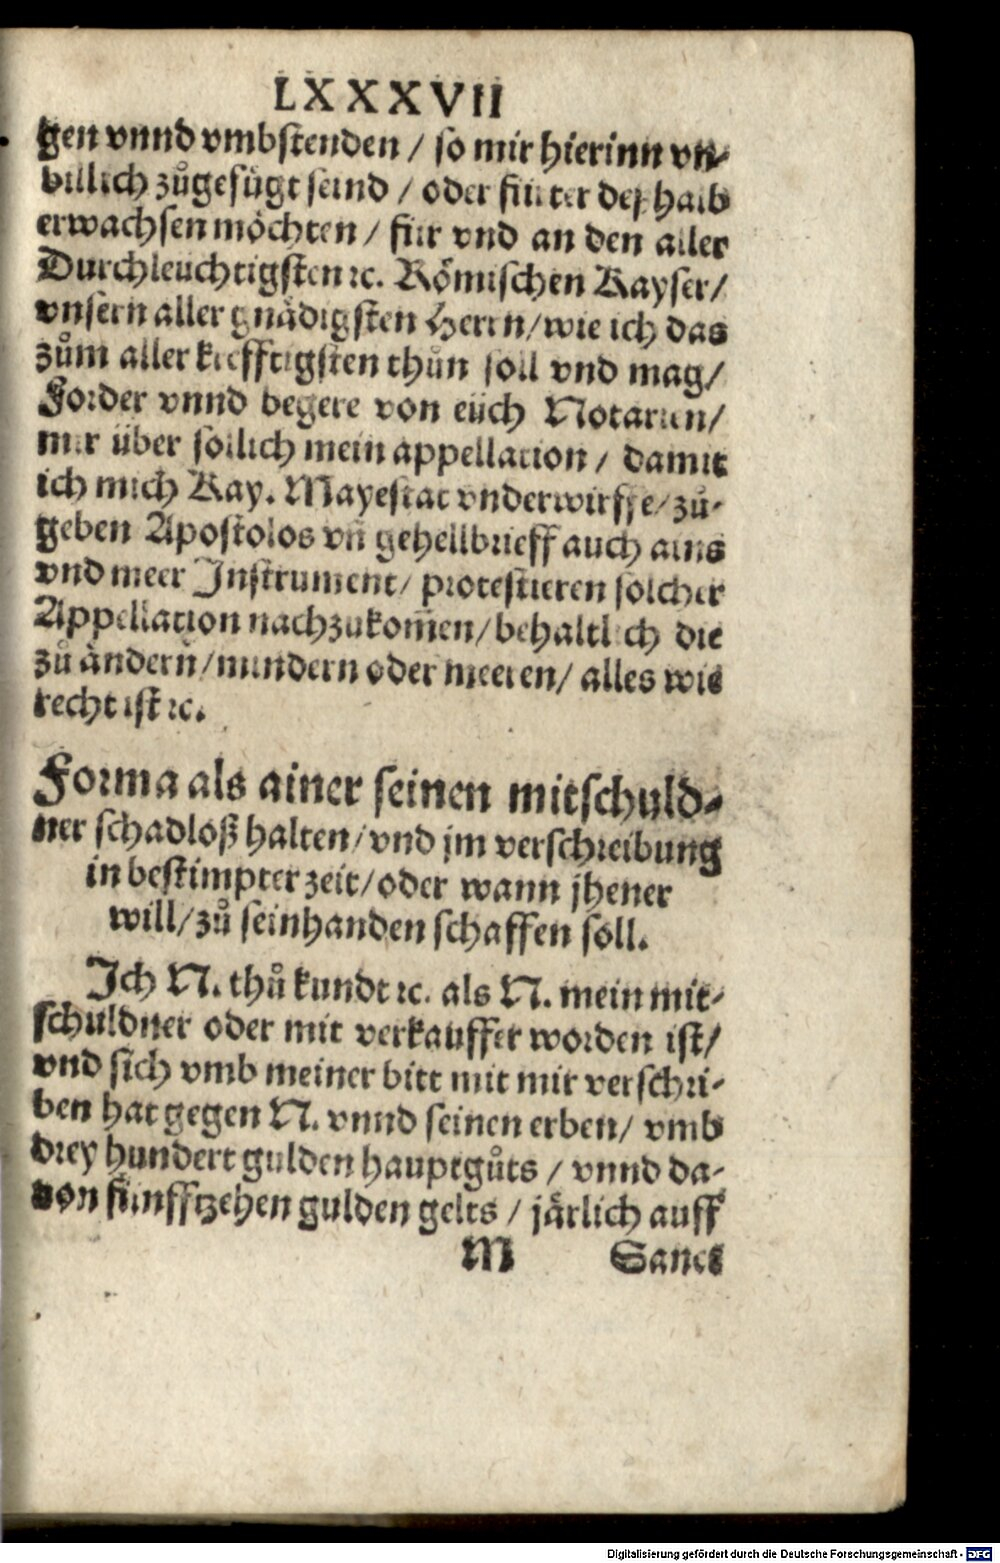 LXXXVII
gen vnnd vmbstenden / so mir hierinn vn-
billich zůgefügt seind / oder füster deßhalb
erwachsen möchten / für vnd an den aller
Durchleuchtigsten ꝛc. Römischen Kayser/
vnsern aller gnädigsten Herrn/wie ich das
zům aller krefftigsten thůn soll vnd mag/
Forder vnnd begere von eüch Notarien/
mir über sollich mein appellation / damit
ich mich Kay. Mayestat vnderwirffe/zů-
geben Apostolos vñ gehellbrieff auch ains
vnd meer Instrument/ protestieren solcher
Appellation nachzukom̃en/behaltlich die
zů åndern/mindern oder meeren/ alles wie
recht ist ꝛc.
Forma als ainer seinen mitschuld-
ner schadloß halten/vnd jm verschreibung
in bestimpter zeit/oder wann jhener
will/zů seinhanden schaffen soll.
Ich N. thů kundt ꝛc. als N. mein mit-
schuldner oder mit verkauffer worden ist/
vnd sich vmb meiner bitt mit mir verschri-
ben hat gegen N. vnnd seinen erben/ vmb
drey hundert gulden hauptgůts / vnnd da-
von fünfftzehen gulden gelts / jårlich auff
M Sanct
Digitalisierung gefördert durch die Deutsche Forschungsgemeinschaft - DFG